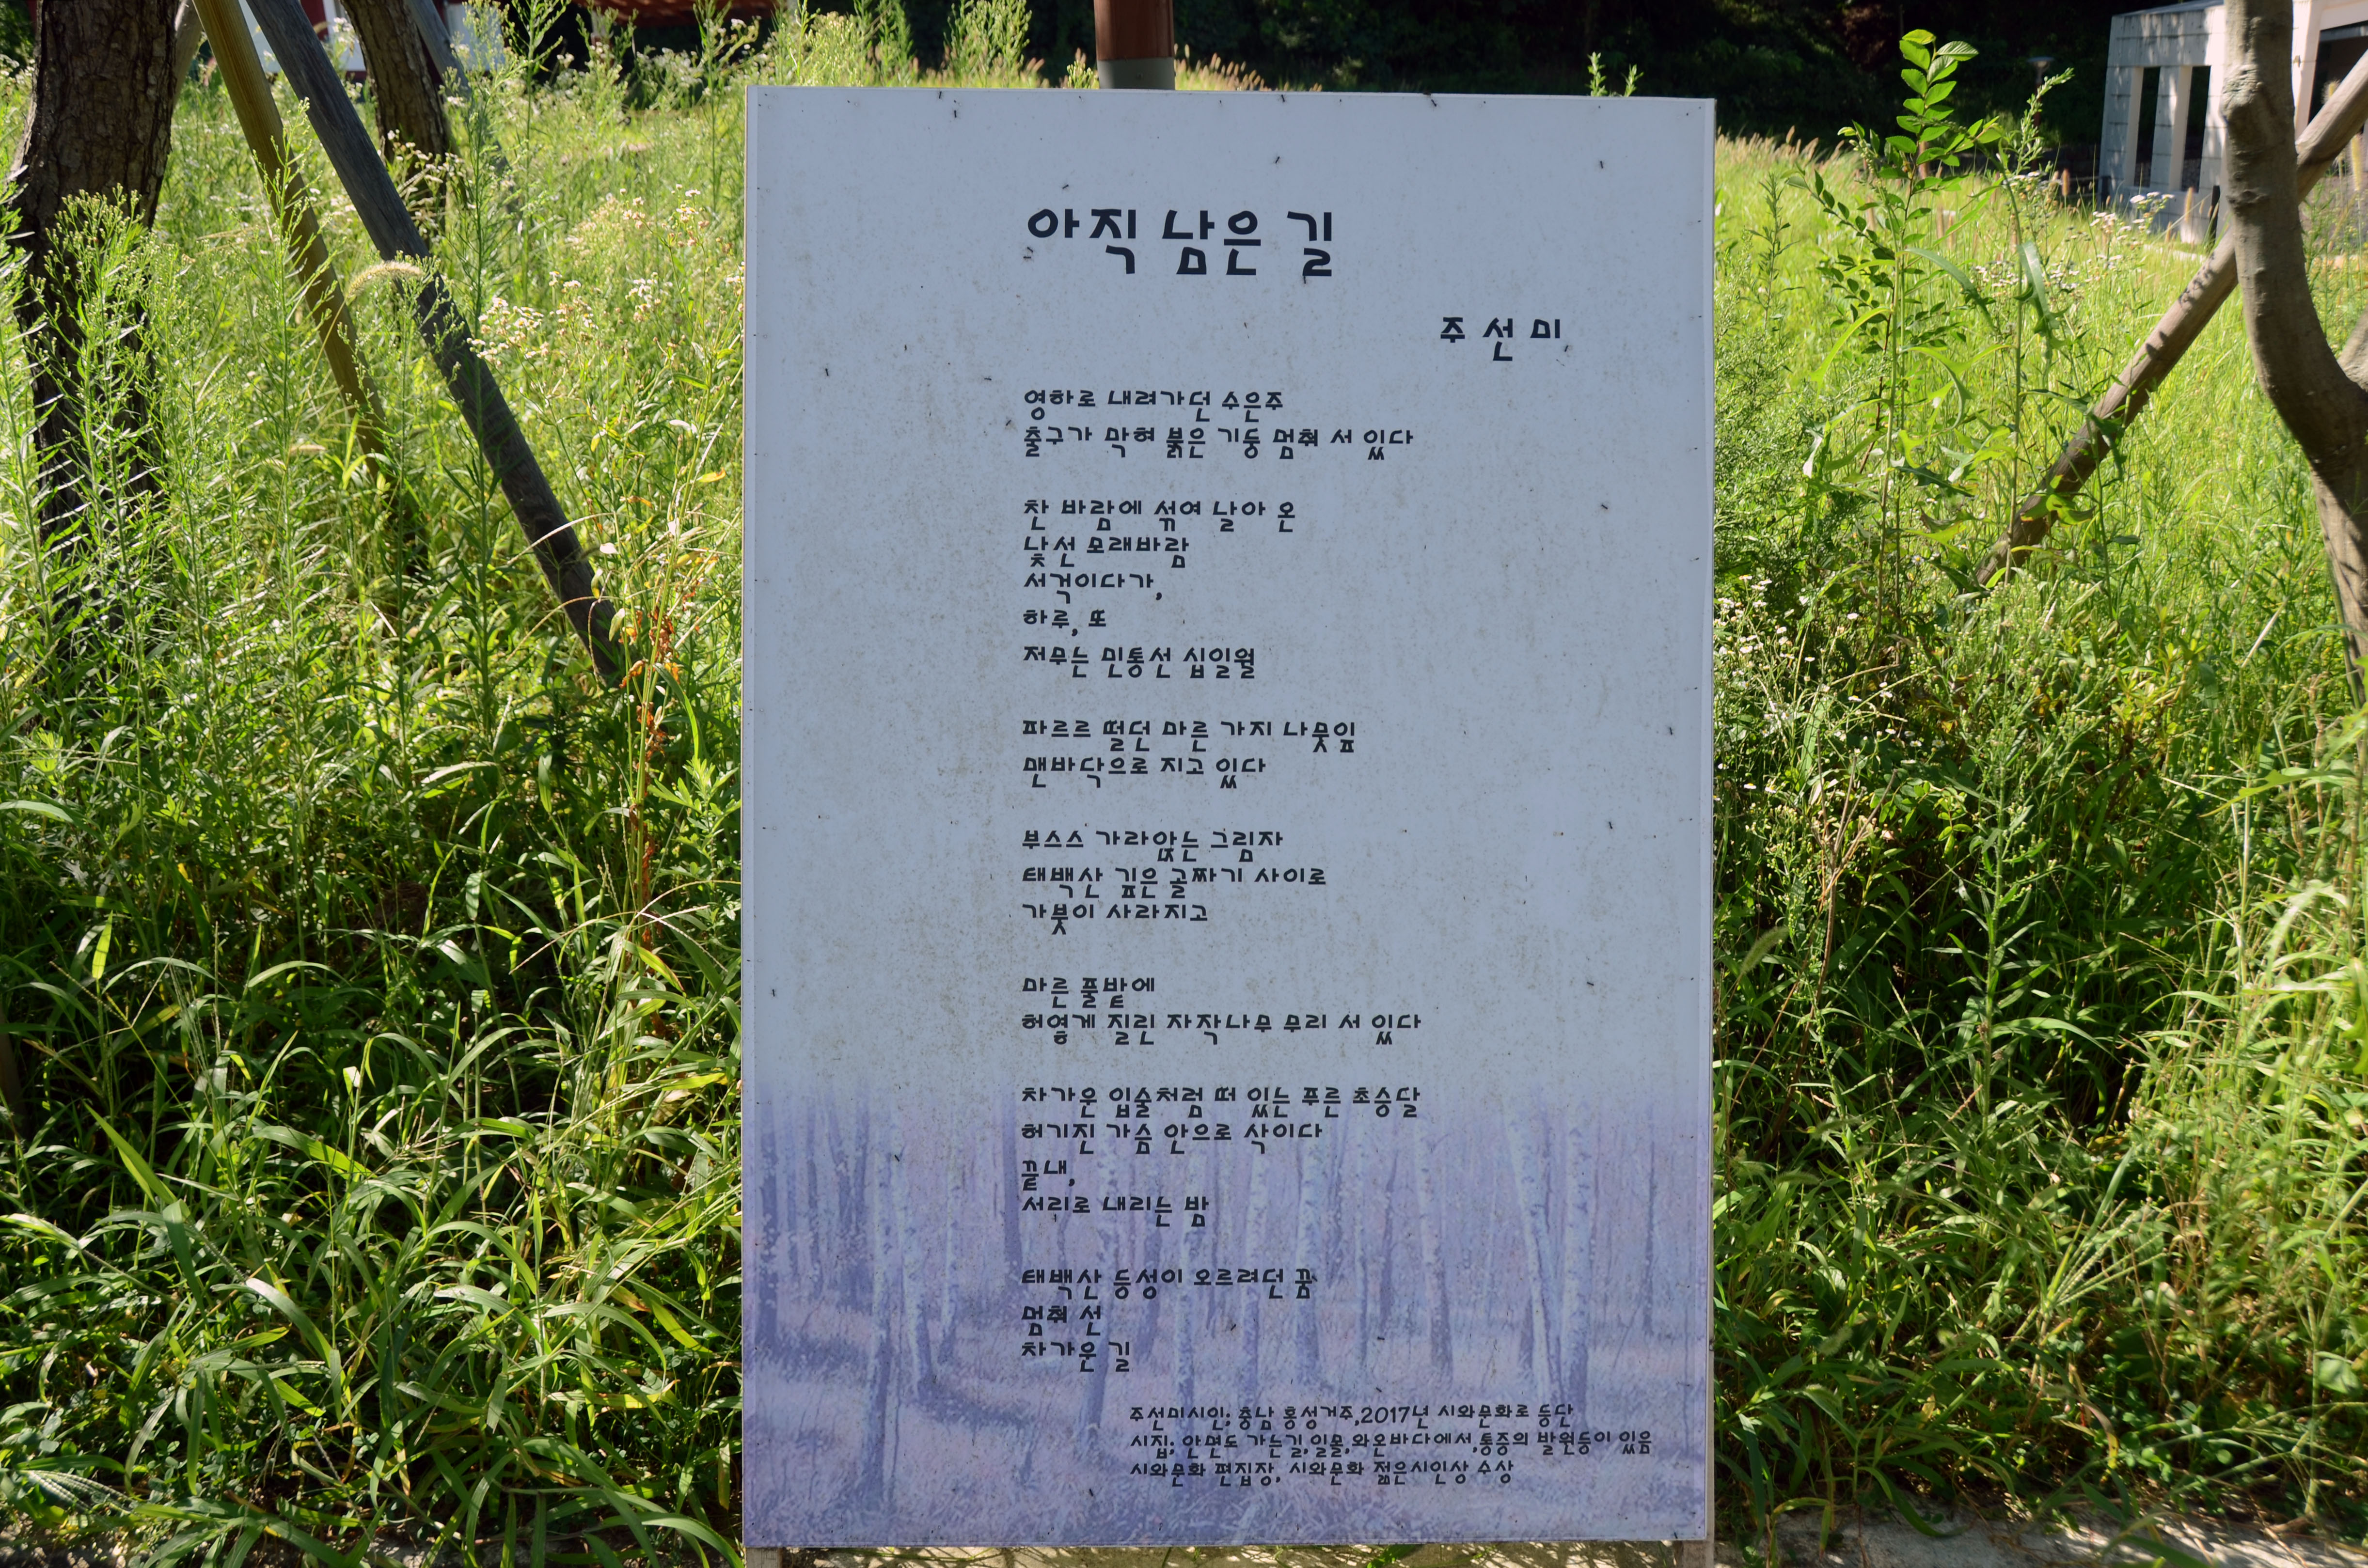 아직 남은 길
주 선 미
영하로 내려가던 수은주
출구가 막혀 붉은 기둥 멈춰 서 있다
찬 바람에 섞여 날아 온
낯선 모래바람
서걱이다가,
하루, 또
저무는 민통선 십일월
파르르 떨던 마른 가지 나뭇잎
맨바닥으로 지고 있다
부스스 가라앉는 그림자
태백산 깊은 골짜기 사이로
가붓이 사라지고
마른 풀밭에
허옇게 질린 자작나무 무리 서 있다
차가운 입술처럼 떠 있는 푸른 초승달
허기진 가슴 안으로 삭이다
끝내,
서리로 내리는 밤
태백산 등성이 오르려던 꿈
멈춰 선
차가운 길
주선미시인; 충남 홍성거주,2017년 시와문화로 등단
시집; 안면도 가는길,일몰,와온바다에서,통증의 발원등이 있음
시와문화 편집장, 시와문화 젊은시인상 수상